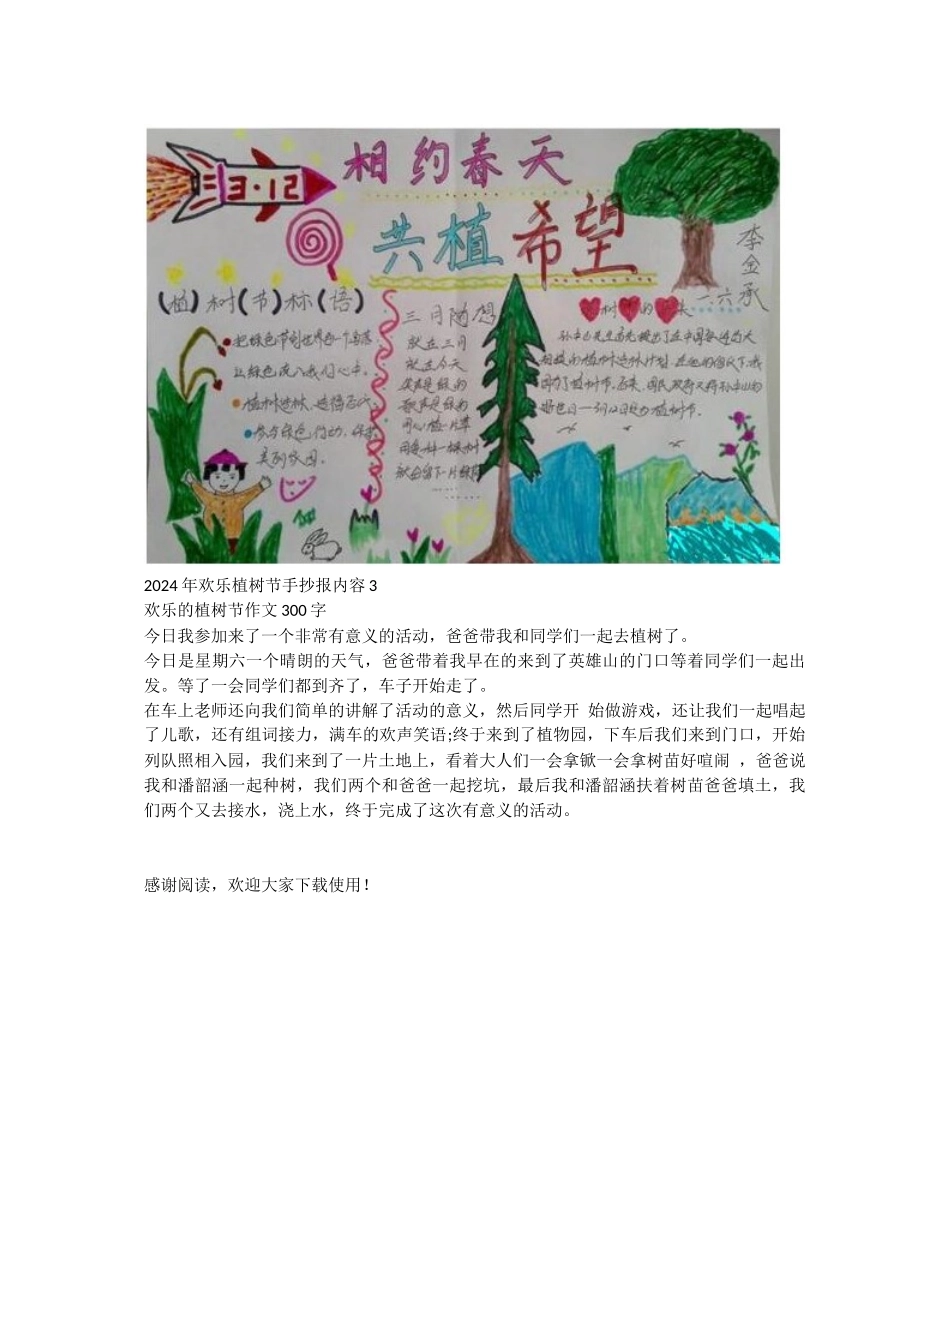 3·12
相约春天
共植希望
李金承
一六
(植)树(节)标(语)
把绿色带到世界每一个角落
让绿色流入我们心中。
植树造林、造福后代。
参与绿色行动，保护
美丽家园。
三月随想
就在三月
就在今天
笑声是绿的
歌声是绿的
用心植一片草
用爱种一棵树
就会留下一片绿荫
树 的 来
孙中山先生首先提出了在中国
植树造林计划
植树节。后来，国民政府又将孙中山的
植树节。
2024 年欢乐植树节手抄报内容 3
欢乐的植树节作文 300 字
今日我参加来了一个非常有意义的活动，爸爸带我和同学们一起去植树了。
今日是星期六一个晴朗的天气，爸爸带着我早在的来到了英雄山的门口等着同学们一起出
发。等了一会同学们都到齐了，车子开始走了。
在车上老师还向我们简单的讲解了活动的意义，然后同学开 始做游戏，还让我们一起唱起
了儿歌，还有组词接力，满车的欢声笑语;终于来到了植物园，下车后我们来到门口，开始
列队照相入园，我们来到了一片土地上，看着大人们一会拿锨一会拿树苗好喧闹 ，爸爸说
我和潘韶涵一起种树，我们两个和爸爸一起挖坑，最后我和潘韶涵扶着树苗爸爸填土，我
们两个又去接水，浇上水，终于完成了这次有意义的活动。
感谢阅读，欢迎大家下载使用！